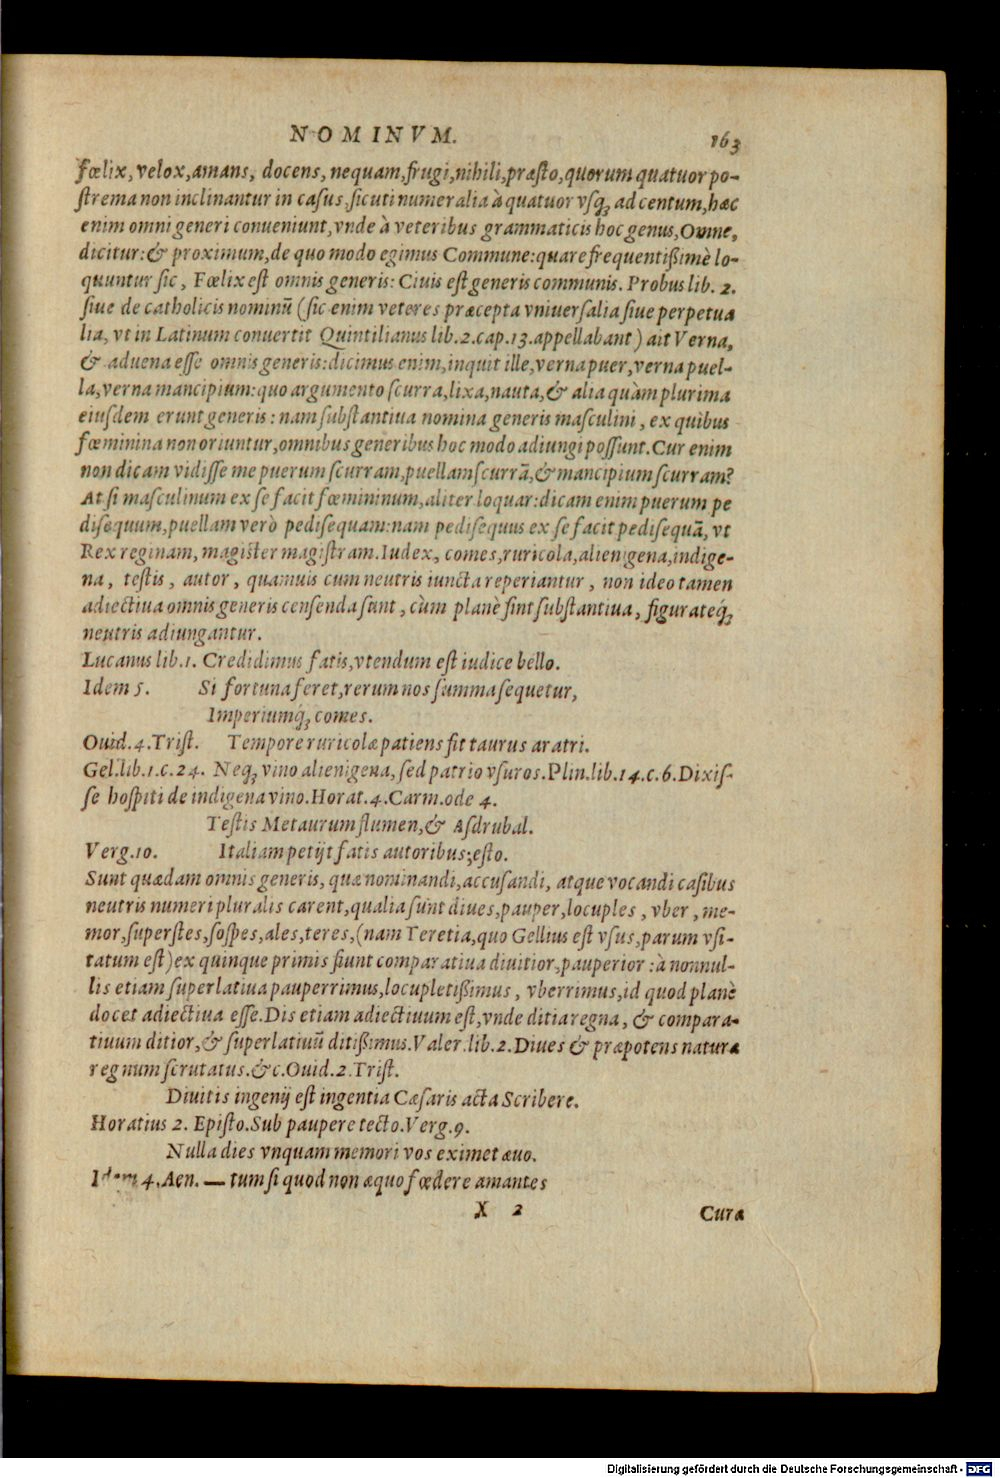 NOMINVM. 163
fœlix, velox, amans, docens, nequam, frugi, nihili, præsto, quorum quatuor po-
strema non inclinantur in casus, sicuti numeralia à quatuor vsq; ad centum, hæc
enim omni generi conueniunt, vnde à veteribus grammaticis hoc genus, Omne,
dicitur: & proximum, de quo modo egimus Commune: quare frequentißimè lo-
quuntur sic, Fœlix est omnis generis: Ciuis est generis communis. Probus lib. 2.
siue de catholicis nominũ (sic enim veteres præcepta vniuersalia siue perpetua
lia, vt in Latinum conuertit Quintilianus lib.2.cap.13.appellabant) ait Verna,
& aduena esse omnis generis: dicimus enim, inquit ille, verna puer, verna puel-
la, verna mancipium: quo argumento scurra, lixa, nauta, & alia quàm plurima
eiusdem erunt generis: nam substantiua nomina generis masculini, ex quibus
fœminina non oriuntur, omnibus generibus hoc modo adiungi possunt. Cur enim
non dicam vidisse me puerum scurram, puellam scurrã, & mancipium scurram?
At si masculinum ex se facit fœmininum, aliter loquar: dicam enim puerum pe
disequum, puellam verò pedisequam: nam pedisequus ex se facit pedisequã, vt
Rex reginam, magister magistram. Iudex, comes, ruricola, alienigena, indige-
na, testis, autor, quamuis cum neutris iuncta reperiantur, non ideo tamen
adiectiua omnis generis censenda sunt, cùm planè sint substantiua, figurateq́;
neutris adiungantur.
Lucanus lib.1. Credidimus fatis, vtendum est iudice bello.
Idem 5. Si fortuna feret, rerum nos summa sequetur,
Imperiumq́; comes.
Ouid.4.Trist. Tempore ruricolæ patiens fit taurus aratri.
Gel.lib.1.c.24. Neq; vino alienigena, sed patrio vsuros. Plin.lib.14.c.6. Dixis-
se hospiti de indigena vino. Horat.4.Carm.ode 4.
Testis Metaurum flumen, & Asdrubal.
Verg.10. Italiam petijt fatis autoribus; esto.
Sunt quædam omnis generis, quæ nominandi, accusandi, atque vocandi casibus
neutris numeri pluralis carent, qualia sunt diues, pauper, locuples, vber, me-
mor, superstes, sospes, ales, teres, (nam Teretia, quo Gellius est vsus, parum vsi-
tatum est) ex quinque primis fiunt comparatiua diuitior, pauperior: à nonnul-
lis etiam superlatiua pauperrimus, locupletißimus, vberrimus, id quod planè
docet adiectiua esse. Dis etiam adiectiuum est, vnde ditia regna, & compara-
tiuum ditior, & superlatiuũ ditißimus. Valer.lib.2. Diues & præpotens natura
regnum scrutatus. &c. Ouid.2.Trist.
Diuitis ingenij est ingentia Cæsaris acta Scribere.
Horatius 2. Episto. Sub paupere tecto. Verg.9.
Nulla dies vnquam memori vos eximet æuo.
Idem 4. Aen. — tum si quod non æquo fœdere amantes
X 2 Curæ
Digitalisierung gefördert durch die Deutsche Forschungsgemeinschaft - DFG